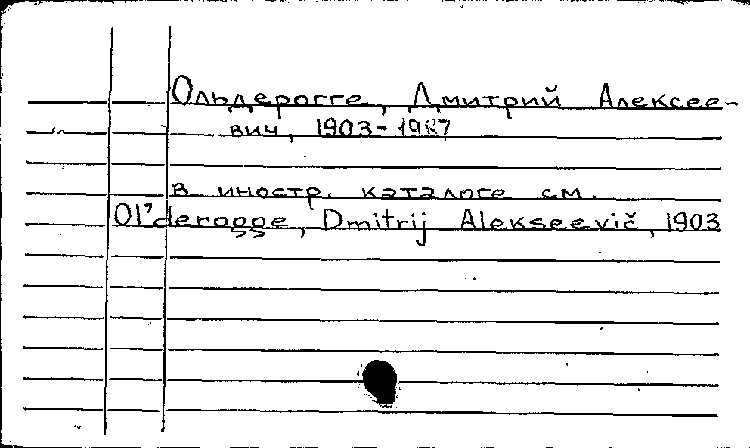 Ольдерогге, Дмитрий Алексее-
вич, 1903-1987
в иностр. каталоге см.
Ol'derogge, Dmitrij Alekseevič, 1903